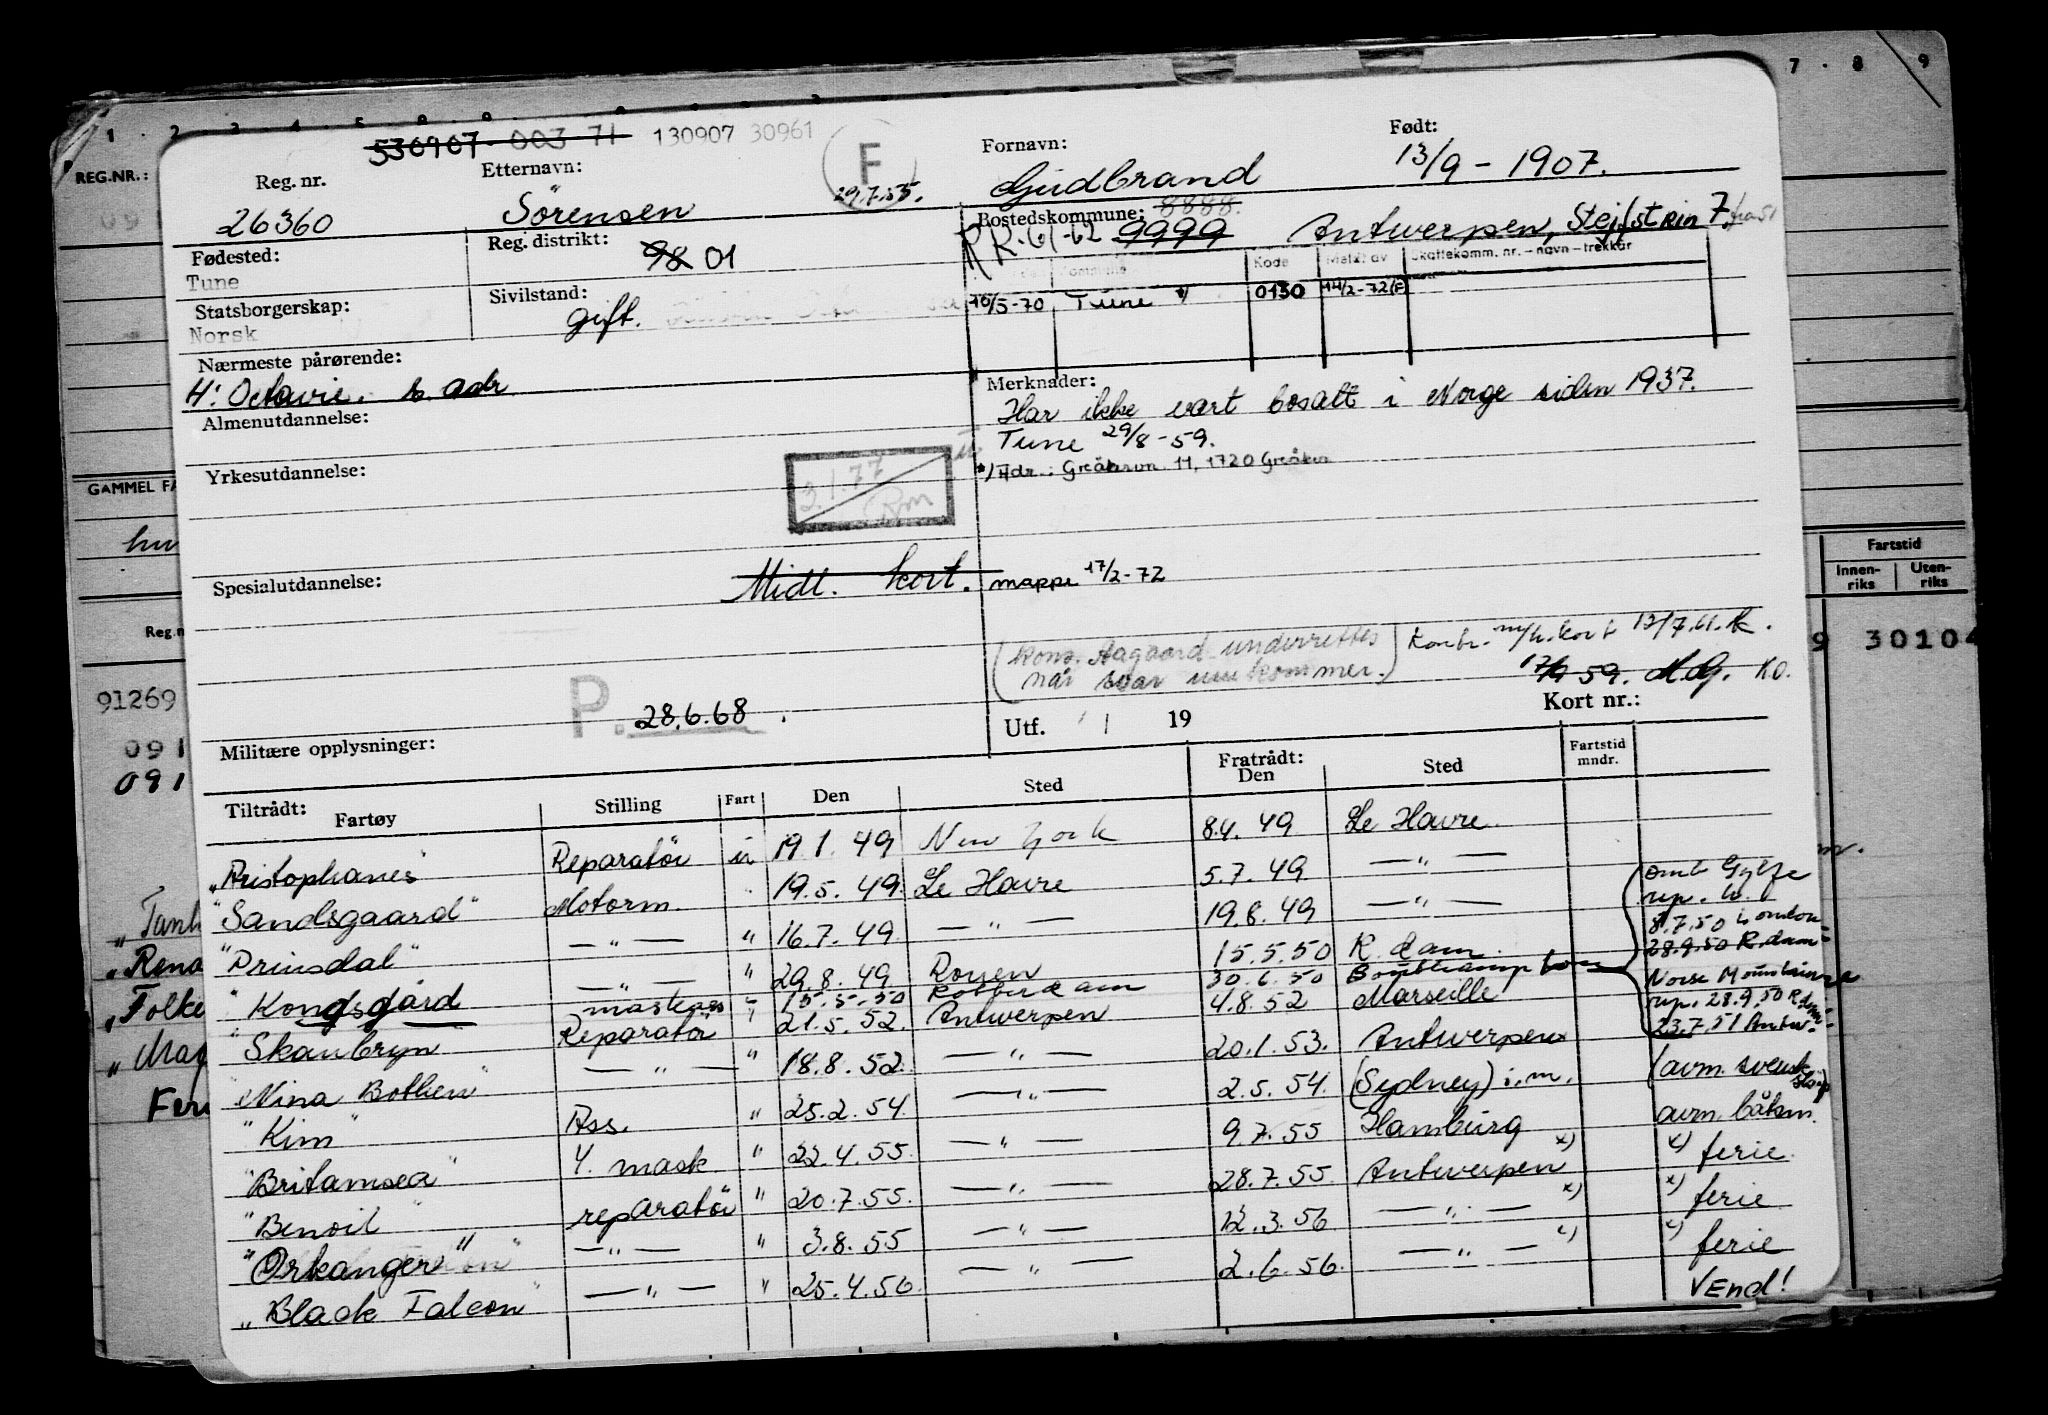 1 . 2 . 3 . 4 . 5
7 . 8 . 9
REG.NR.:
530907 003 71 130907 30961
Reg. nr. Etternavn: F Fornavn: Født:
26360 Sörensen 29.7.55. Gudbrand 13/9 - 1907.
Fødested: Reg. distrikt: 98 01 Bostedskommune: 8888.
Tune RR-61-62 9999 Antwerpen, 7
Kode Meldt av Skattekomm. nr. – navn – trekkår
Statsborgerskap: Sivilstand: 10/5-70 Tune *) 0130 14/2-72(F)
Norsk gift.
Nærmeste pårørende:
H: Octavie. s. adr Merknader:
Har ikke vært bosatt i Norge siden 1937.
Almenutdannelse: Tune 29/8-59.
*) Adr.: Greåkervn. 11, 1720 Greåker
Yrkesutdannelse: 3.1.77
GAMMEL FA
Spesialutdannelse: Midl. kort. mappe 17/2-72
Fartstid
Innen- riks Uten- riks
Reg.n
(Kons. Aagaard underrettes Kontr. m/h.kort 13/7.61. K.
når svar innkommer.) 17/9 59. M.G. KO.
9 30104
91269
091
091
P. 28.6.68. Utf. / 19 Kort nr.:
Militære opplysninger:
Tiltrådt: Fartøy Stilling Fart Den Sted Fratrådt: Den Sted Fartstid mndr.
"Aristophanes" Reparatör u 19.1.49 New York 8.4.49 Le Havre.
"Sandsgaard" Motorm. 19.5.49. Le Havre 5.7.49 — " —
"Prinsdal" — " — " 16.7.49. — " — 19.8.49 — " — omb Gylfe rep. to.
"Kongsgård — " — " 29.8.49 Rouen 15.5.50 R.dam. 8.7.50 London 28.9.50 R.dam
mastens " 15.5.50 Rotterdam 30.6.50
"Skaubryn Reparatör " 21.5.52. Antwerpen 4.8.52 Marseille Norse Mountain rep. 28.9.50 R.dam 23.7.51 Antw.
"Nina Bothen" — " — " 18.8.52. — " — 20.1.53. Antwerpen
"Kim" Ass. " 25.2.54. — " — 2.5.54. (Sydney) i.m. (avm. svensk skip
"Britamsea" 4. mask. " 22.4.55. — " — 9.7.55 Hamburg avm. båtm.
"Benoil" reparatör " 20.7.55. — " — 28.7.55. Antwerpen x) x) ferie.
"Orkanger" — " — " 3.8.55 — " — 12.3.56 — " — x) x) ferie
"Black Falcon" — " — " 25.4.56. — " — 2.6.56. — " — x) x) ferie
Vend!
"Folke
Fer